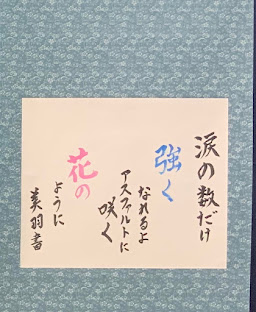 涙の数だけ
強く
なれるよ
アスファルトに
咲く
花の
ように
美羽書